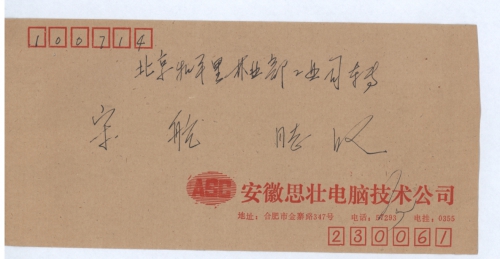 100714
北京和平里林业部工业司转
宋 航 同志 收
ASC 安徽思壮电脑技术公司
地址：合肥市金寨路347号 电话：57293 电挂：0355
230061